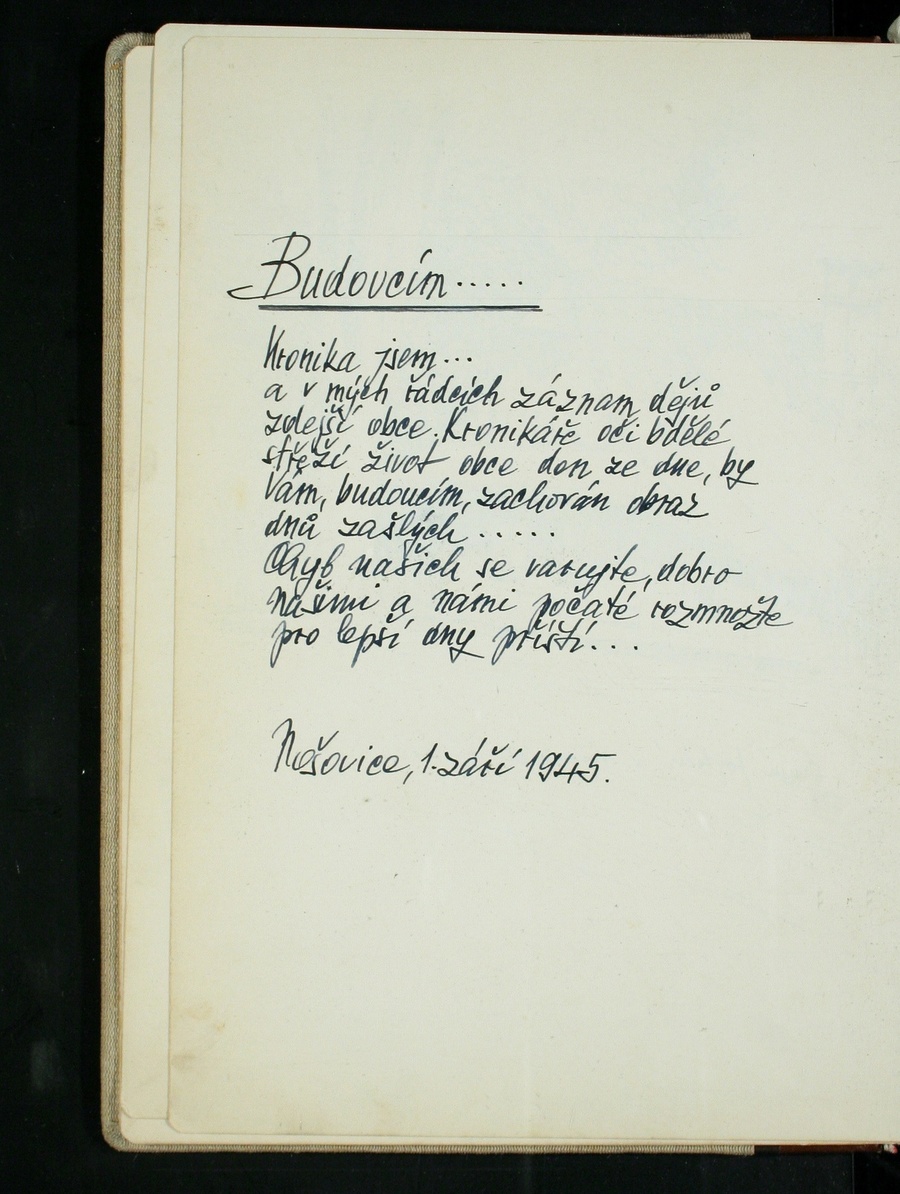 Budoucím.....
Kronika jsem...
a v mých řádcích záznam dějů
zdejší obce. Kronikáře oči bdělé
střeží život obce den ze dne, by
Vám, budoucím, zachován obraz
dnů zašlých.....
Chyb našich se varujte, dobro
našimi a námi počaté rozmnožte
pro lepší dny příští...
Nošovice, 1. září 1945.